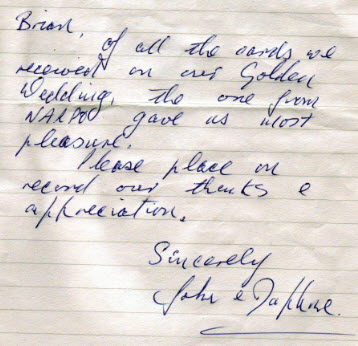 Brian,
Of all the cards we
received on our Golden
Wedding, the one from
NARPO gave us most
pleasure.
Please place on
record our thanks &
appreciation.
Sincerely
John & Daphne.